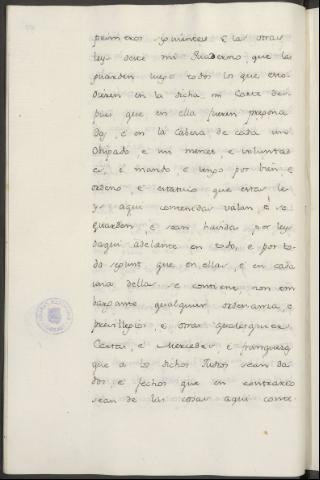 primeros siguientes e las otras
leys deste mi Quaderno, que las
guarden luego todos los que esto
dixeren en la dicha mi Corte des
pues que en ella fueren pregona
das, e en la Cabeza de cada un
Obispado, e mi merced, e voluntad
es, e mando, e tengo por bien e
ordeno, e establezco que estas le
ys aqui contenidas valan é se
guarden, e sean havidas por leys
daqui adelante en todo, e por to
do segunt que en ellas, e en cada
una dellas se contiene, non em
bargante qualquier ordenanza, e
previllegios, e otras qualesquier
Cartas, e Mercedes, e franquezas
que a los dichos Judios sean da
dos e fechos que en contrario
sean de las cosas aqui conte